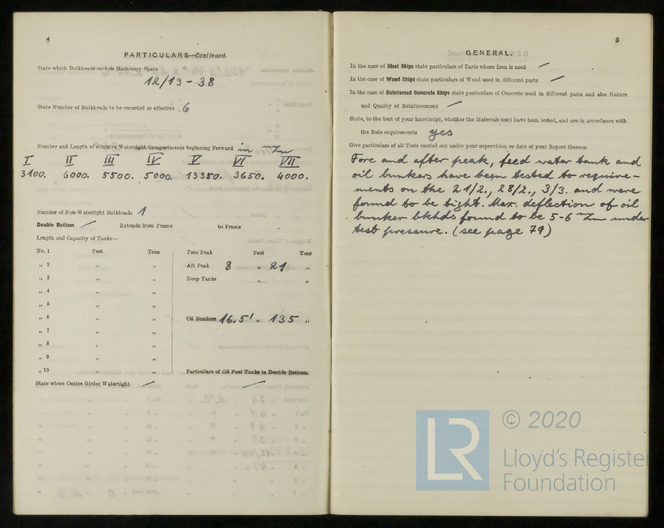 4
PARTICULARS—Continued.
State which Bulkheads enclose Machinery Space
12/13 - 38
State Number of Bulkheads to be recorded as effective 6
Number and Length of effective Watertight Compartments beginning Forward in m/m
I II III IV V VI VII
3100. 6000. 5500. 5000. 13350. 3650. 4000.
Number of Non-Watertight Bulkheads 1
Double Bottom Extends from Frame to Frame
Length and Capacity of Tanks—
No. 1 Feet Tons Fore Peak Feet Tons
„ 2 „ „ Aft Peak 8 „ 21 „
„ 3 „ „ Deep Tanks „ „
„ 4 „ „
„ 5 „ „
„ 6 „ „ Oil Bunkers 16.5' „ 135 „
„ 7 „ „
„ 8 „ „
„ 9 „ „
„ 10 „ „ Particulars of Oil Fuel Tanks in Double Bottom.
State where Centre Girder Watertight
5
GENERAL.
In the case of Steel Ships state particulars of Parts where Iron is used
In the case of Wood Ships state particulars of Wood used in different parts
In the case of Reinforced Concrete Ships state particulars of Concrete used in different parts and also Nature
and Quality of Reinforcement
State, to the best of your knowledge, whether the Materials used have been tested, and are in accordance with
the Rule requirements yes
Give particulars of all Tests carried out under your supervision or date of your Report thereon
Fore and after peak, feed water tank and
oil bunkers have been tested to require-
ments on the 21/2., 28/2., 3/3. and were
found to be tight. Max. deflection of oil
bunker bkhds found to be 5-6 m/m under
test pressure. (see page 79)
LR © 2020
Lloyd's Register
Foundation